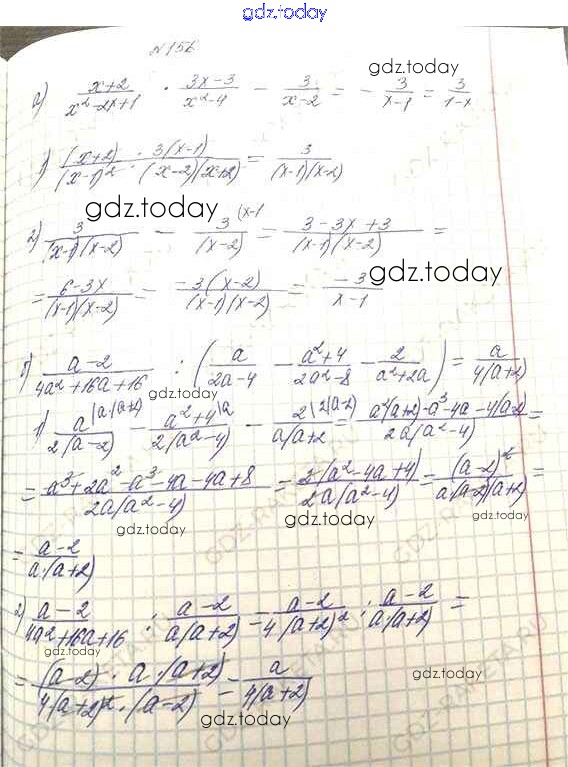 gdz.today
№156
а) (x+2)/(x²-2x+1) · (3x-3)/(x²-4) - 3/(x-2) = - 3/(x-1) = 3/(1-x)
gdz.today
1) (x+2)/(x-1)² · 3(x-1)/((x-2)(x+2)) = 3/((x-1)(x-2))
gdz.today
2) 3/((x-1)(x-2)) - 3/(x-2) (x-1 = (3-3x+3)/((x-1)(x-2)) =
gdz.today
= (6-3x)/((x-1)(x-2)) = -3(x-2)/((x-1)(x-2)) = -3/(x-1)
б) (a-2)/(4a²+16a+16) : (a/(2a-4) - (a²+4)/(2a²-8) - 2/(a²+2a)) = a/(4(a+2))
gdz.today
1) a/(2(a-2)) (a·(a+2) - (a²+4)/(2(a²-4)) (a - 2/(a(a+2)) (2(a-2) = (a²(a+2)-a³-4a-4(a-2))/(2a(a²-4)) =
gdz.today
= (a³+2a²-a³-4a-4a+8)/(2a(a²-4)) = 2(a²-4a+4)/(2a(a²-4)) = (a-2)²/(a(a-2)(a+2)) =
gdz.today
gdz.today
= (a-2)/(a·(a+2))
2) (a-2)/(4a²+16a+16) : (a-2)/(a(a+2)) = (a-2)/(4(a+2)²) : (a-2)/(a·(a+2)) =
gdz.today
gdz.today
= ((a-2)·a·(a+2))/(4(a+2)²·(a-2)) = a/(4(a+2))
gdz.today